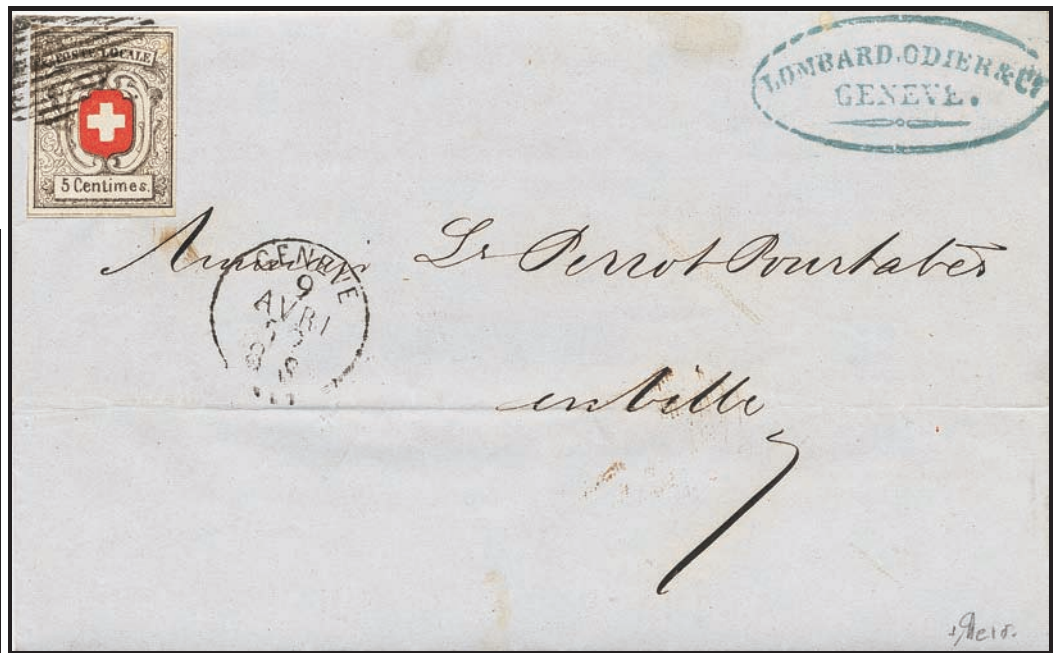 POSTE LOCALE
5 Centimes.
LOMBARD, ODIER & Cie
GENEVE.
Monsieur Ls Perrot Pourtalès
GENEVE
9
AVRI
en Ville